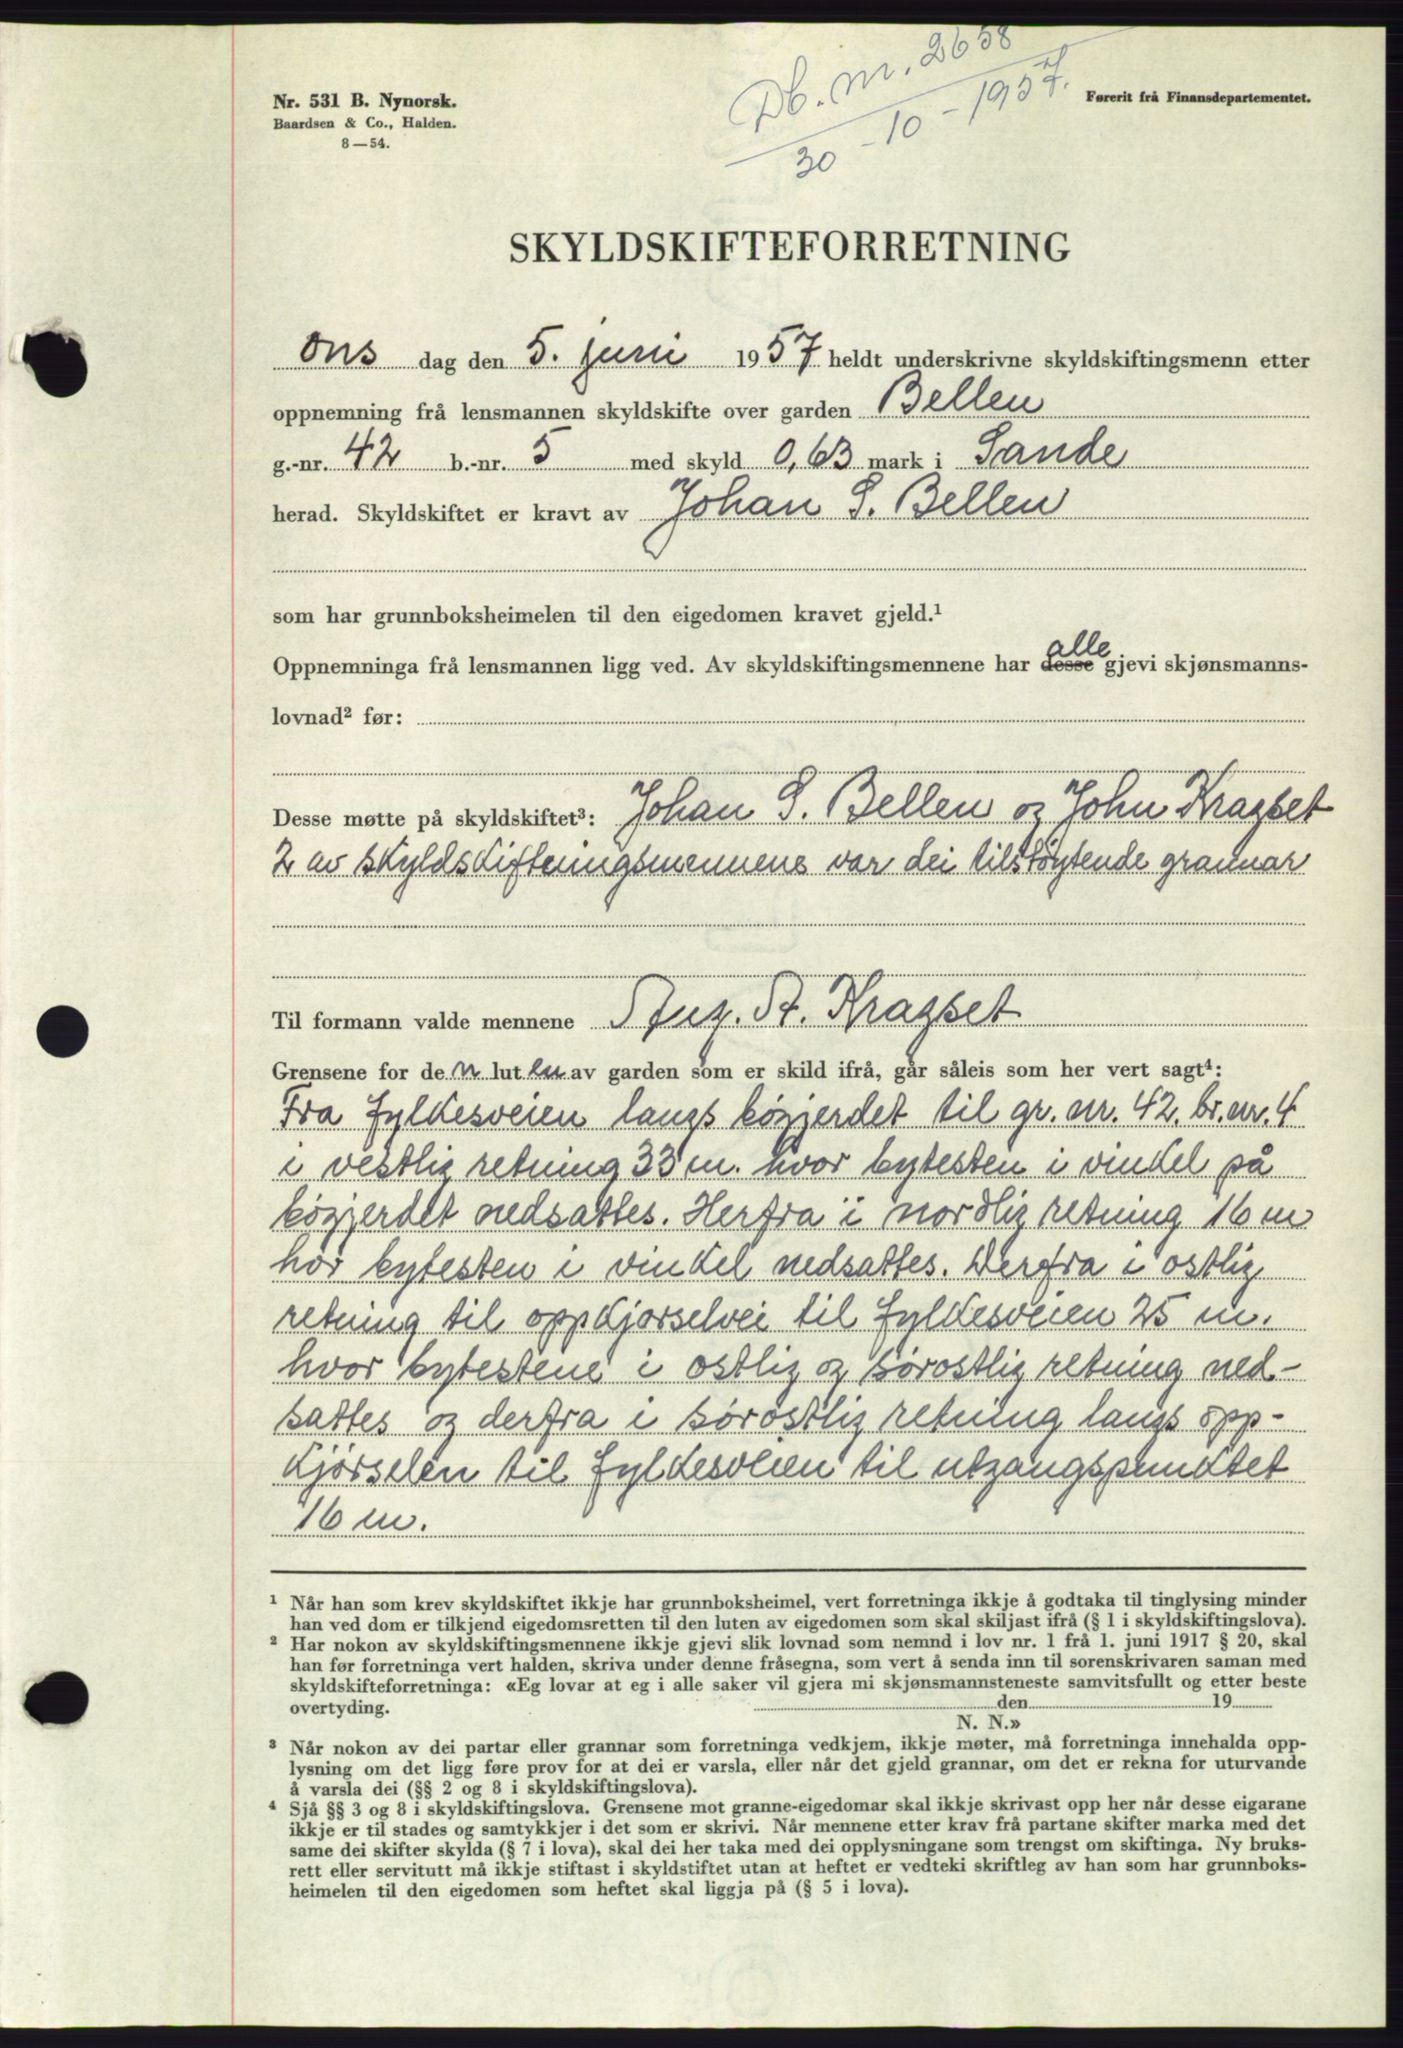 Db. nr. 2658
30 - 10 - 1957.
Nr. 531 B. Nynorsk.
Baardsen & Co., Halden.
8—54.
Førerit frå Finansdepartementet.
SKYLDSKIFTEFORRETNING
Ons dag den 5. juni 1957 heldt underskrivne skyldskiftingsmenn etter
oppnemning frå lensmannen skyldskifte over garden Bellen
g.-nr. 42 b.-nr. 5 med skyld 0,63 mark i Sande
herad. Skyldskiftet er kravt av Johan S. Bellen
som har grunnboksheimelen til den eigedomen kravet gjeld.¹
alle
Oppnemninga frå lensmannen ligg ved. Av skyldskiftingsmennene har desse gjevi skjønsmanns-
lovnad² før:
Desse møtte på skyldskiftet³: Johan S. Bellen og John Kragset
2 av skyldskifteningsmennene var dei tilstøytende grannar
Til formann valde mennene Aug. A. Kragset
Grensene for den luten av garden som er skild ifrå, går såleis som her vert sagt⁴:
Fra fylkesveien langs bøgjerdet til gr. nr. 42. br. nr. 4
i vestlig retning 33 m. hvor bytesten i vinkel på
bøgjerdet nedsattes. Herfra i nordlig retning 16 m
hvor bytesten i vinkel nedsattes. Derfra i østlig
retning til oppkjørselvei til fylkesveien 25 m.
hvor bytestene i østlig og sørostlig retning ned-
sattes og derfra i sørøstlig retning langs opp-
kjørselen til fylkesveien til utgangspunktet
16 m.
¹ Når han som krev skyldskiftet ikkje har grunnboksheimel, vert forretninga ikkje å godtaka til tinglysing minder
han ved dom er tilkjend eigedomsretten til den luten av eigedomen som skal skiljast ifrå (§ 1 i skyldskiftingslova).
² Har nokon av skyldskiftingsmennene ikkje gjevi slik lovnad som nemnd i lov nr. 1 frå 1. juni 1917 § 20, skal
han før forretninga vert halden, skriva under denne fråsegna, som vert å senda inn til sorenskrivaren saman med
skyldskifteforretninga: «Eg lovar at eg i alle saker vil gjera mi skjønsmannsteneste samvitsfullt og etter beste
overtyding. den 19
N. N.»
³ Når nokon av dei partar eller grannar som forretninga vedkjem, ikkje møter, må forretninga innehalda opp-
lysning om det ligg føre prov for at dei er varsla, eller når det gjeld grannar, om det er rekna for uturvande
å varsla dei (§§ 2 og 8 i skyldskiftingslova).
⁴ Sjå §§ 3 og 8 i skyldskiftingslova. Grensene mot granne-eigedomar skal ikkje skrivast opp her når desse eigarane
ikkje er til stades og samtykkjer i det som er skrivi. Når mennene etter krav frå partane skifter marka med det
same dei skifter skylda (§ 7 i lova), skal dei her taka med dei opplysningane som trengst om skiftinga. Ny bruks-
rett eller servitutt må ikkje stiftast i skyldstiftet utan at heftet er vedteki skriftleg av han som har grunnboks-
heimelen til den eigedomen som heftet skal liggja på (§ 5 i lova).